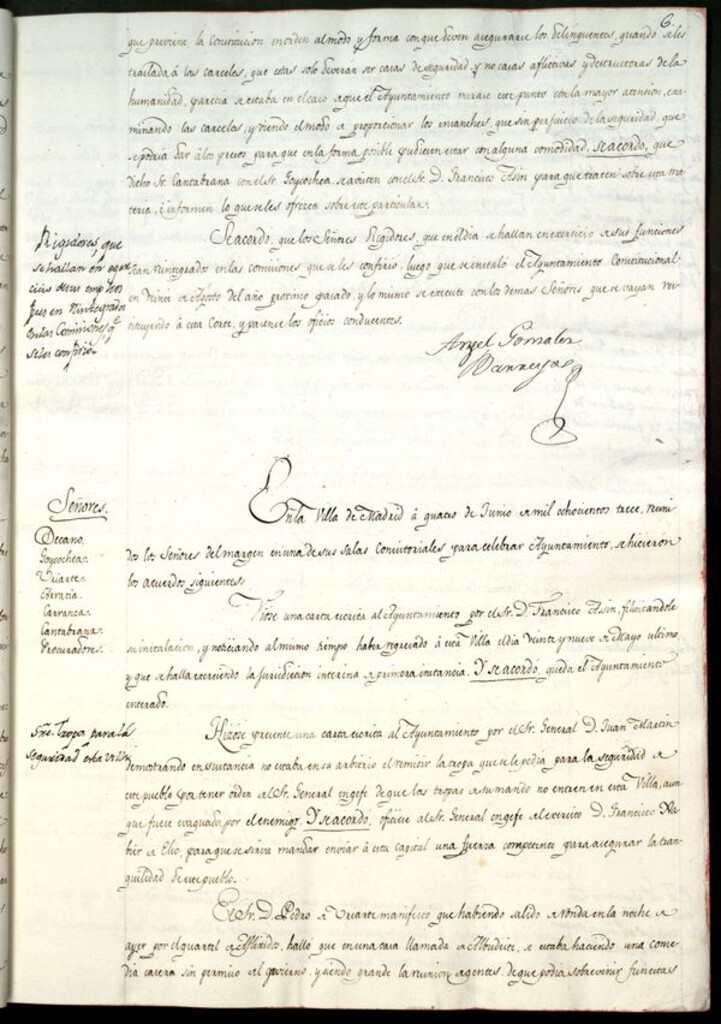 6
que previene la Constitucion en orden al modo y forma con que deven asegurarse los delinquentes, quando se les
traslada á las carceles, que estas solo deverán ser casas de seguridad, y no casas aflictivas y destructoras de la
humanidad, parecia se estaba en el caso de que el Ayuntamiento mirase este punto con la mayor atencion, exa-
minando las carceles, y viendo el modo de proporcionar los ensanches, que sin perjuicio de la seguridad, que
se podria dar á los presos para que en la forma posible pudiesen estar con alguna comodidad. Se acordo, que
dicho Sr. Cantabrana con el Sr. Goycochea, se avisten con el Sr. D. Francisco Asin para que traten sobre esta ma-
teria, é informen lo que se les ofrezca sobre este particular.
Regidores, que
se hallan en exer-
cicio de sus empleos
que en Reintegrados
en las Comisiones q.e
se les confirió.
Se acordo, que los Señores Regidores, que en el dia se hallan en exercicio de sus funciones
sean reintegrados en las comisiones, que se les confirió, luego que se instaló el Ayuntamiento Constitucional
en Veinte de Agosto del año proximo pasado, y lo mismo se execute con los demas Señores que se vayan res-
tituyendo á esta Corte, y pasense los oficios conducentes.
Angel Gonzalez
Barreyro
Señores.
Decano.
Goycochea.
Uriarte.
Carranza.
Cantabrana.
Procuradores.
En la Villa de Madrid á quatro de Junio de mil ochocientos trece, reuni-
dos los Señores del margen en una de sus Salas Consistoriales para celebrar Ayuntamiento, se hicieron
los acuerdos siguientes
Viose una carta escrita al Ayuntamiento por el Sr. D. Francisco Asin, felicitandole
su instalacion, y noticiando al mismo tiempo haber regresado á esta Villa el dia Veinte y nueve de Mayo ultimo,
y que se halla exerciendo la Jurisdiccion interina de primera instancia. Y se acordó, queda el Ayuntamiento
enterado.
Sre. Tropa para la
seguridad de esta Villa
Hizose presente una carta escrita al Ayuntamiento por el Sr. General D. Juan Martin
demostrando en sustancia no estaba en su arbitrio el remitir la tropa que se le pedia para la seguridad de
este pueblo por tener orden del Sr. General en gefe de que las tropas de su mando no entren en esta Villa, aun
que fuese evaquada por el enemigo. Y se acordó, oficiese al Sr. General en gefe del exercito D. Francisco Xa-
bier de Elio, para que se sirva mandar enviar á esta capital una fuerza competente para asegurar la tran-
quilidad de este pueblo.
El Sr. D. Pedro de Uriarte manifestó que habiendo salido de ronda en la noche de
ayer por el quartel de Afligidos, halló que en una casa llamada de se estaba haciendo una come-
dia casera sin permiso del govierno, y siendo grande la reunion de gentes, de que podia sobrevenir funestas